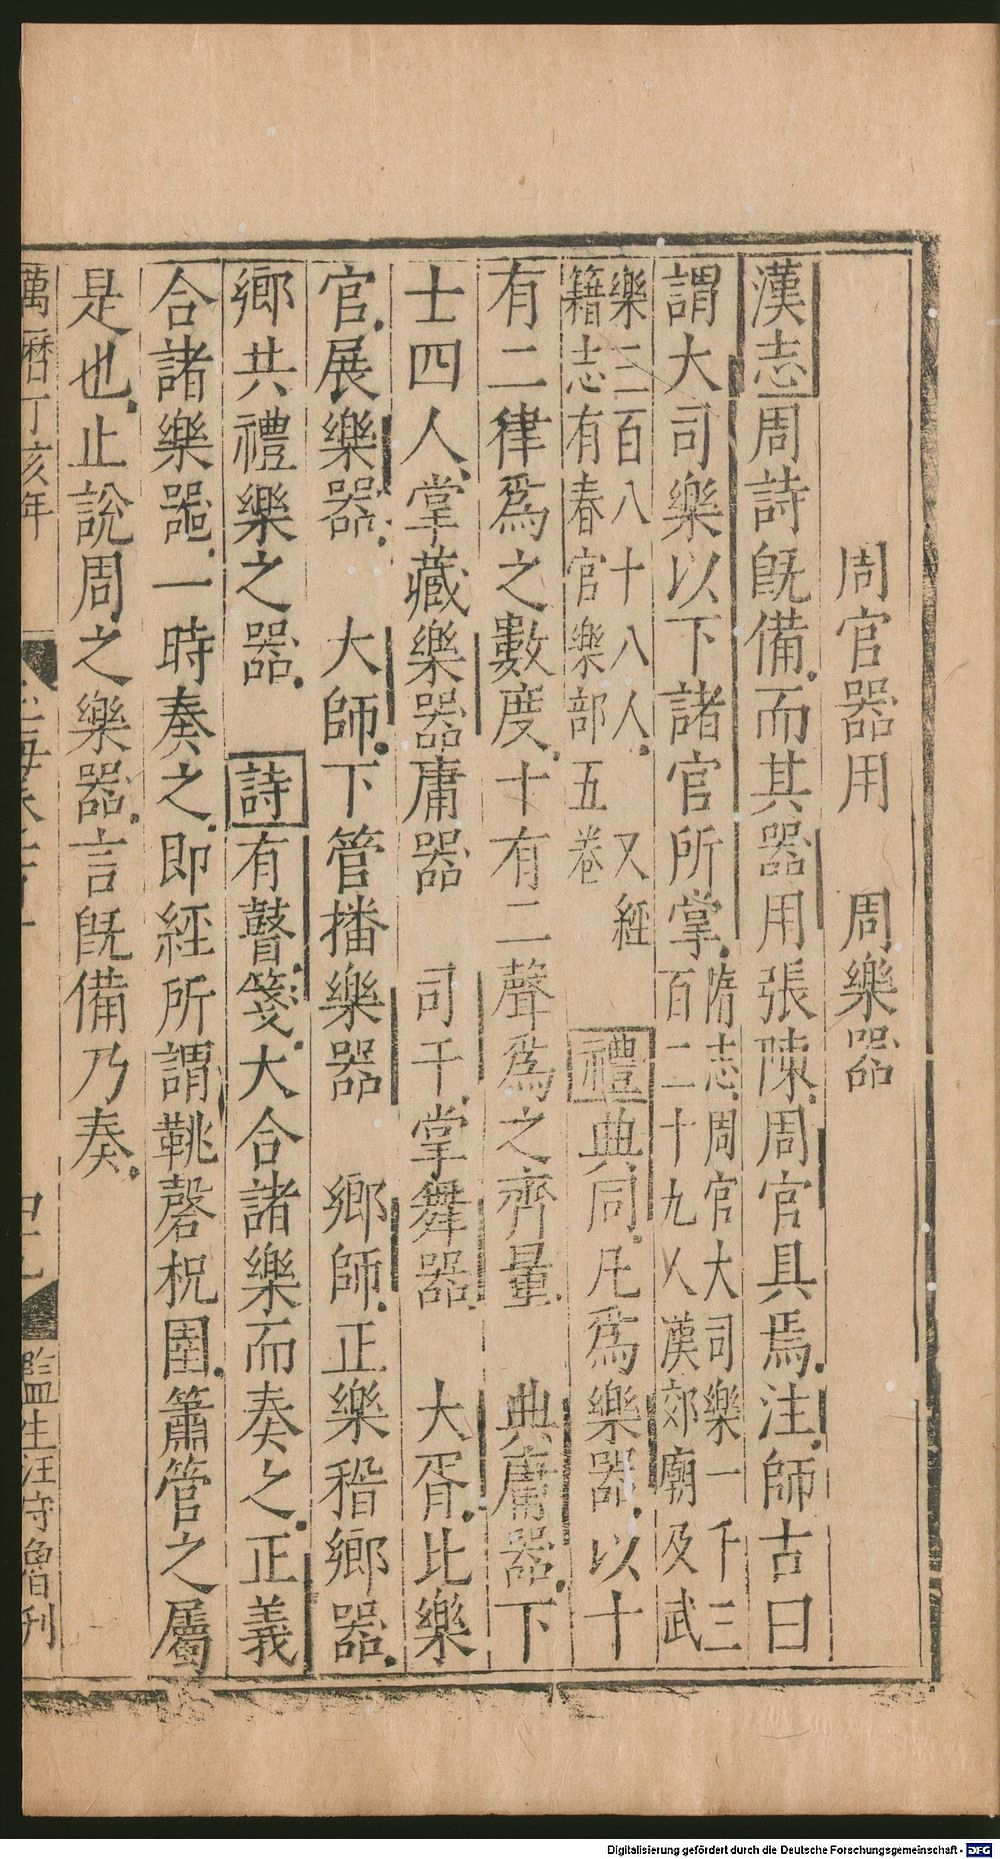 周官器用　周樂器
漢志周詩旣備而其器用張陳周官具焉注師古曰
謂大司樂以下諸官所掌隋志周官大司樂一千三
百二十九人漢郊廟及武
樂三百八十八人　又經
籍志有春官樂部五卷
禮典同凡爲樂器以十
有二律爲之數度十有二聲爲之齊量　典庸器下
士四人掌藏樂器庸器　司干掌舞器　大胥比樂
官展樂器　大師下管播樂器　鄉師正樂稽鄉器
鄉共禮樂之器　詩有瞽箋大合諸樂而奏之正義
合諸樂器一時奏之卽經所謂鞉磬柷圉簫管之屬
是也止說周之樂器言旣備乃奏
萬曆丁亥年
監生汪守魯刊
Digitalisierung gefördert durch die Deutsche Forschungsgemeinschaft - DFG